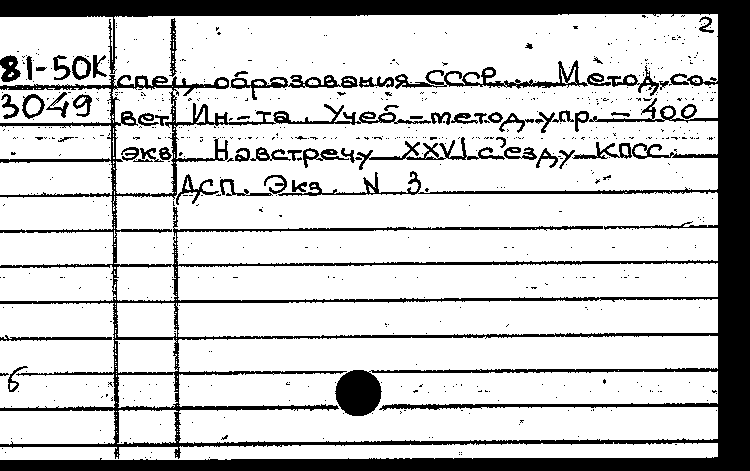 2
81-50К спец. образования СССР... Метод. со-
3049 вет Ин-та. Учеб.-метод. упр. - 400
экз. Навстречу XXVI съезду КПСС.
ДСП. Экз. N 3.
б